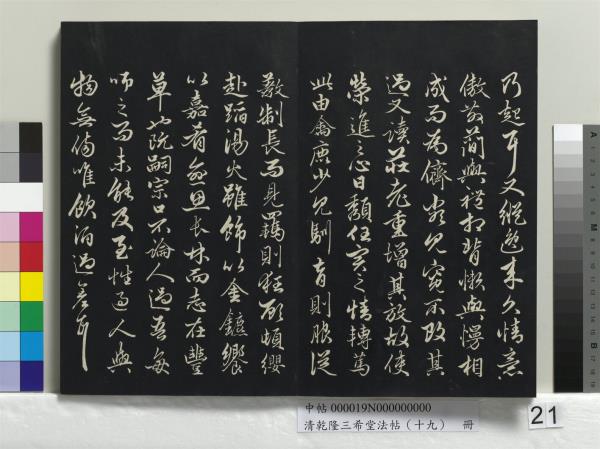 乃起耳又縱逸來久情意
傲散簡與禮相背懶與慢相
成而為儕類見寬不攻其
過又讀莊老重增其放故使
榮進之心日頹任實之情轉篤
此由禽鹿少見馴育則服從
教制長而見羈則狂顧頓纓
赴蹈湯火雖飾以金鑣饗
以嘉肴愈思長林而志在豐
草也阮嗣宗口不論人過吾每
師之而未能及至性過人與
物無傷唯飲酒過差耳
中帖 000019N000000000
清乾隆三希堂法帖(十九) 冊
21